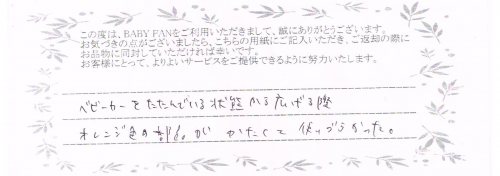 この度は、BABY FANをご利用いただきまして、誠にありがとうございます。
お気づきの点がございましたら、こちらの用紙にご記入いただき、ご返却の際に
お品物に同封していただければ幸いです。
お客様にとって、よりよいサービスをご提供できるように努力いたします。
ベビーカーをたたんでいる状態から広げる際
オレンジ色の部分がかたくて使いづらかった。